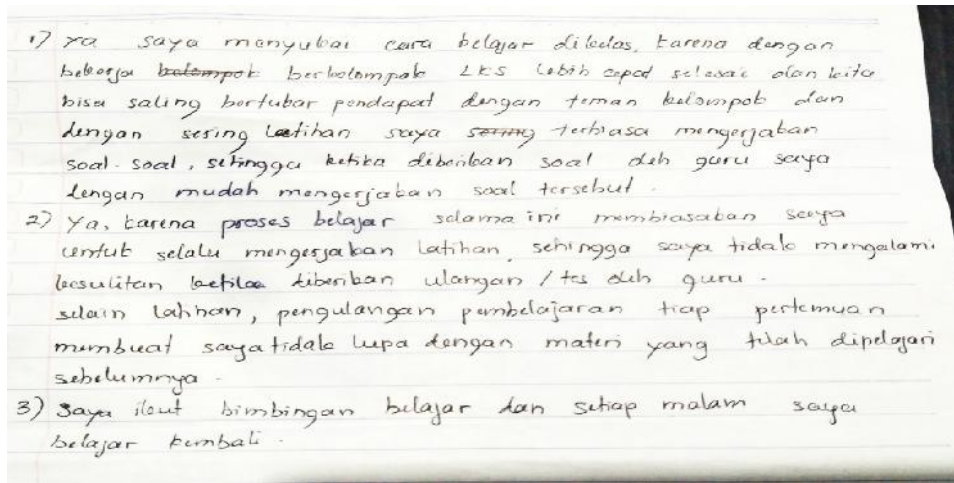 1) Ya saya menyukai cara belajar dikelas, karena dengan
bekerja kelompok berkelompok LKS lebih cepat selesai dan kita
bisa saling bertukar pendapat dengan teman kelompok dan
dengan sering latihan saya sering terbiasa mengerjakan
soal-soal, sehingga ketika diberikan soal oleh guru saya
dengan mudah mengerjakan soal tersebut.
2) Ya, karena proses belajar selama ini membiasakan saya
untuk selalu mengerjakan latihan, sehingga saya tidak mengalami
kesulitan ketika diberikan ulangan / tes oleh guru.
selain latihan, pengulangan pembelajaran tiap pertemuan
membuat saya tidak lupa dengan materi yang telah dipelajari
sebelumnya.
3) Saya ikut bimbingan belajar dan setiap malam saya
belajar kembali.